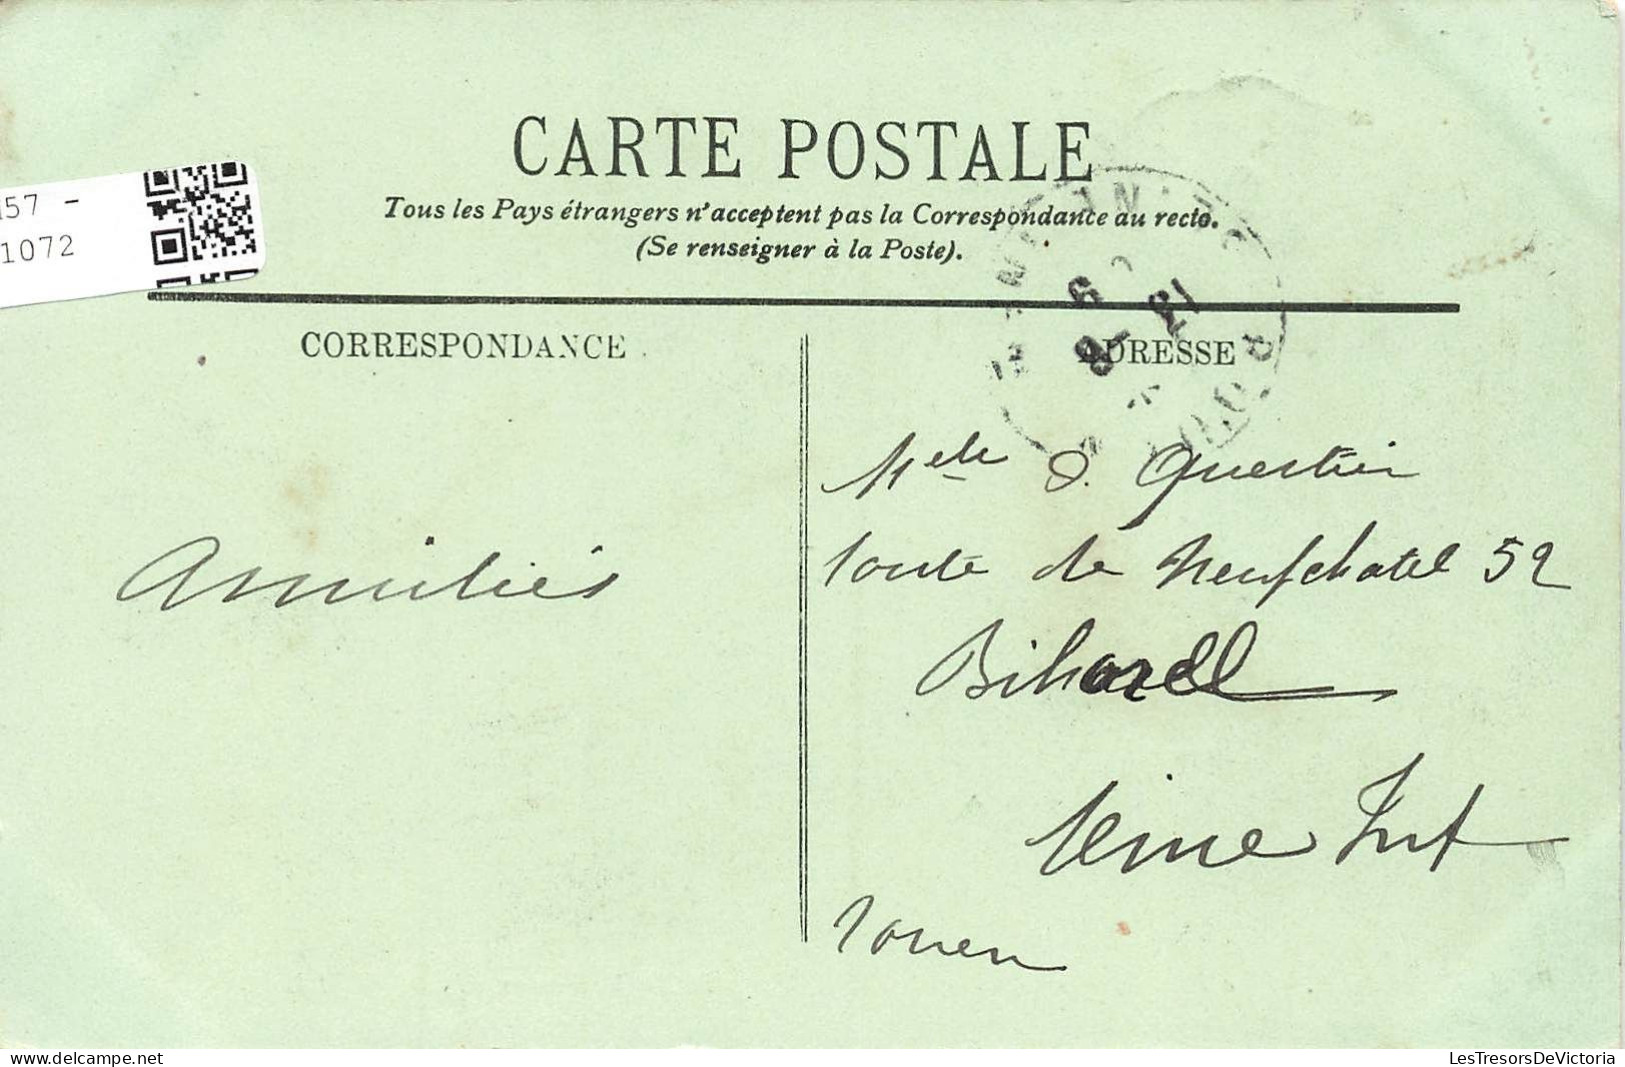 CARTE POSTALE
Tous les Pays étrangers n'acceptent pas la Correspondance au recto.
(Se renseigner à la Poste).
57 -
1072
CORRESPONDANCE
ADRESSE
Amitiés
Melle J. Questier
route de Neufchatel 52
Bihorel
Seine Inf
rouen
LesTresorsDeVictoria